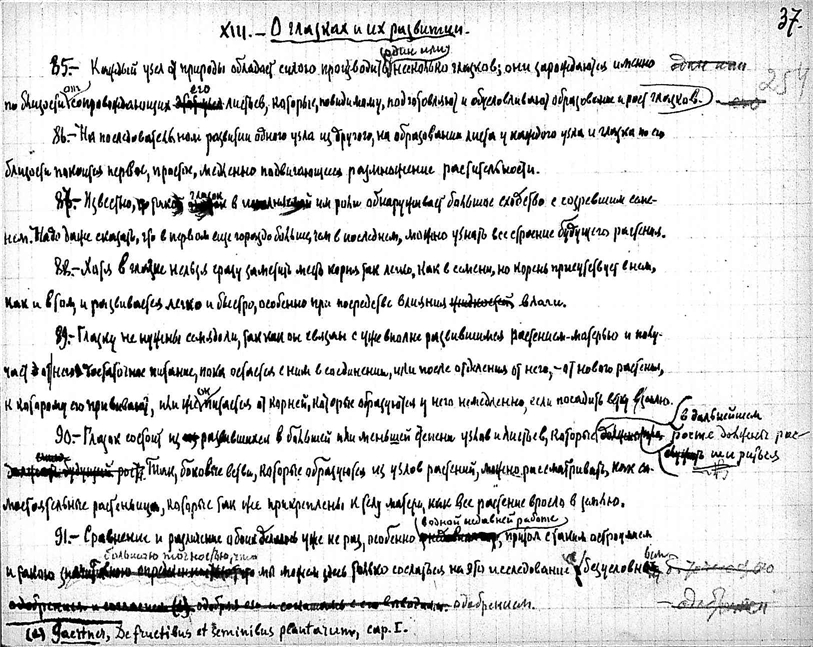 37.
254
XIII. — О глазках и их развитии.
85. — Каждый узел от природы обладает силою производить один или несколько глазков; они зарождаются именно
по близости от сопровождающих его листьев, которые, повидимому, подготовляют и обусловливают образование и рост глазков.
86. — На последовательном развитии одного узла из другого, на образовании листа у каждого узла и глазка по его
близости покоится первое, простое, медленно подвигающееся размножение растительности.
87. — Известно, что такой глазок в им роли обнаруживает большое сходство с созревшим семе-
нем. Надо даже сказать, что в первом еще гораздо больше, чем в последнем, можно узнать все строение будущего растения.
88. — Хотя в глазке нельзя сразу заметить места корня так легко, как в семени, но корень присутствует в нем,
как и в том, и развивается легко и быстро, особенно при посредстве влияния влаги.
89. — Глазку не нужны семядоли, так как он связан с уже вполне развившимся растением-матерью и полу-
чает от него достаточное питание, пока остается с ним в соединении, или после отделения от него, — от нового растения,
к которому его прививают, или он питается от корней, которые образуются у него немедленно, если посадить ветку в землю.
90. — Глазок состоит из развившихся в большей или меньшей степени узлов и листьев, которые в дальнейшем
росте должны рас-
шириться
Так, боковые ветви, которые образуются из узлов растений, можно рассматривать, как са-
мостоятельные растеньица, которые так же прикреплены к телу матери, как все растение вросло в землю.
91. — Сравнение и различие обоих делалось уже не раз, особенно в одной недавней работе, притом с таким остроумием
и такою большою точностью, что мы можем здесь только сослаться на это исследование с безусловным
одобрением.
(a) Gaertner, De fructibus et seminibus plantarum, cap. I.